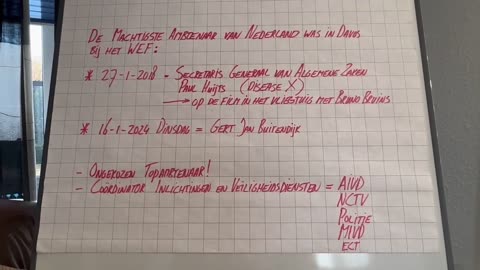 De Machtigste Ambtenaar van Nederland was in Davos
Bij het WEF:
* 27-1-2018 - Secretaris Generaal van Algemene Zaken
Paul Huijts (Disease X)
→ op de film in het vliegtuig met Bruno Bruins
* 16-1-2024 Dinsdag = Gert Jan Buitendijk
- Ongekozen Topambtenaar!
- Coördinator Inlichtingen en Veiligheidsdiensten = AIVD
NCTV
Politie
MIVD
ECT